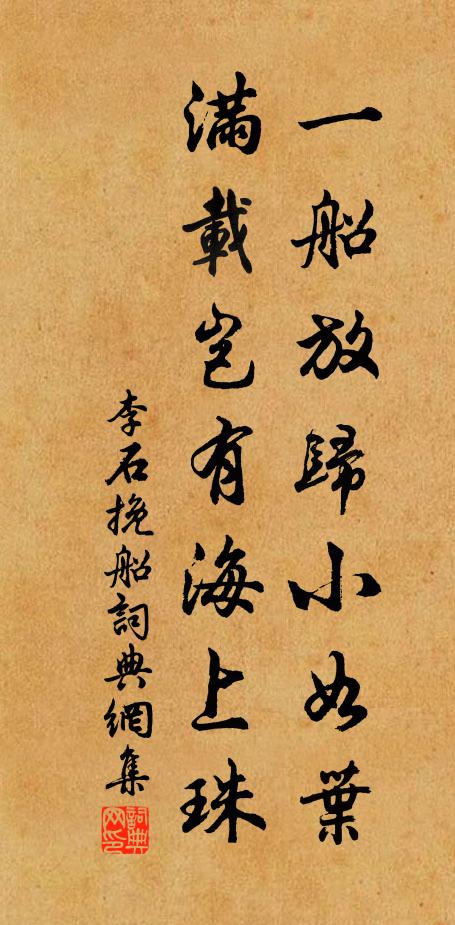 一船放歸小如葉
滿載豈有海上珠
李石挽船詞典網集
詞典网印